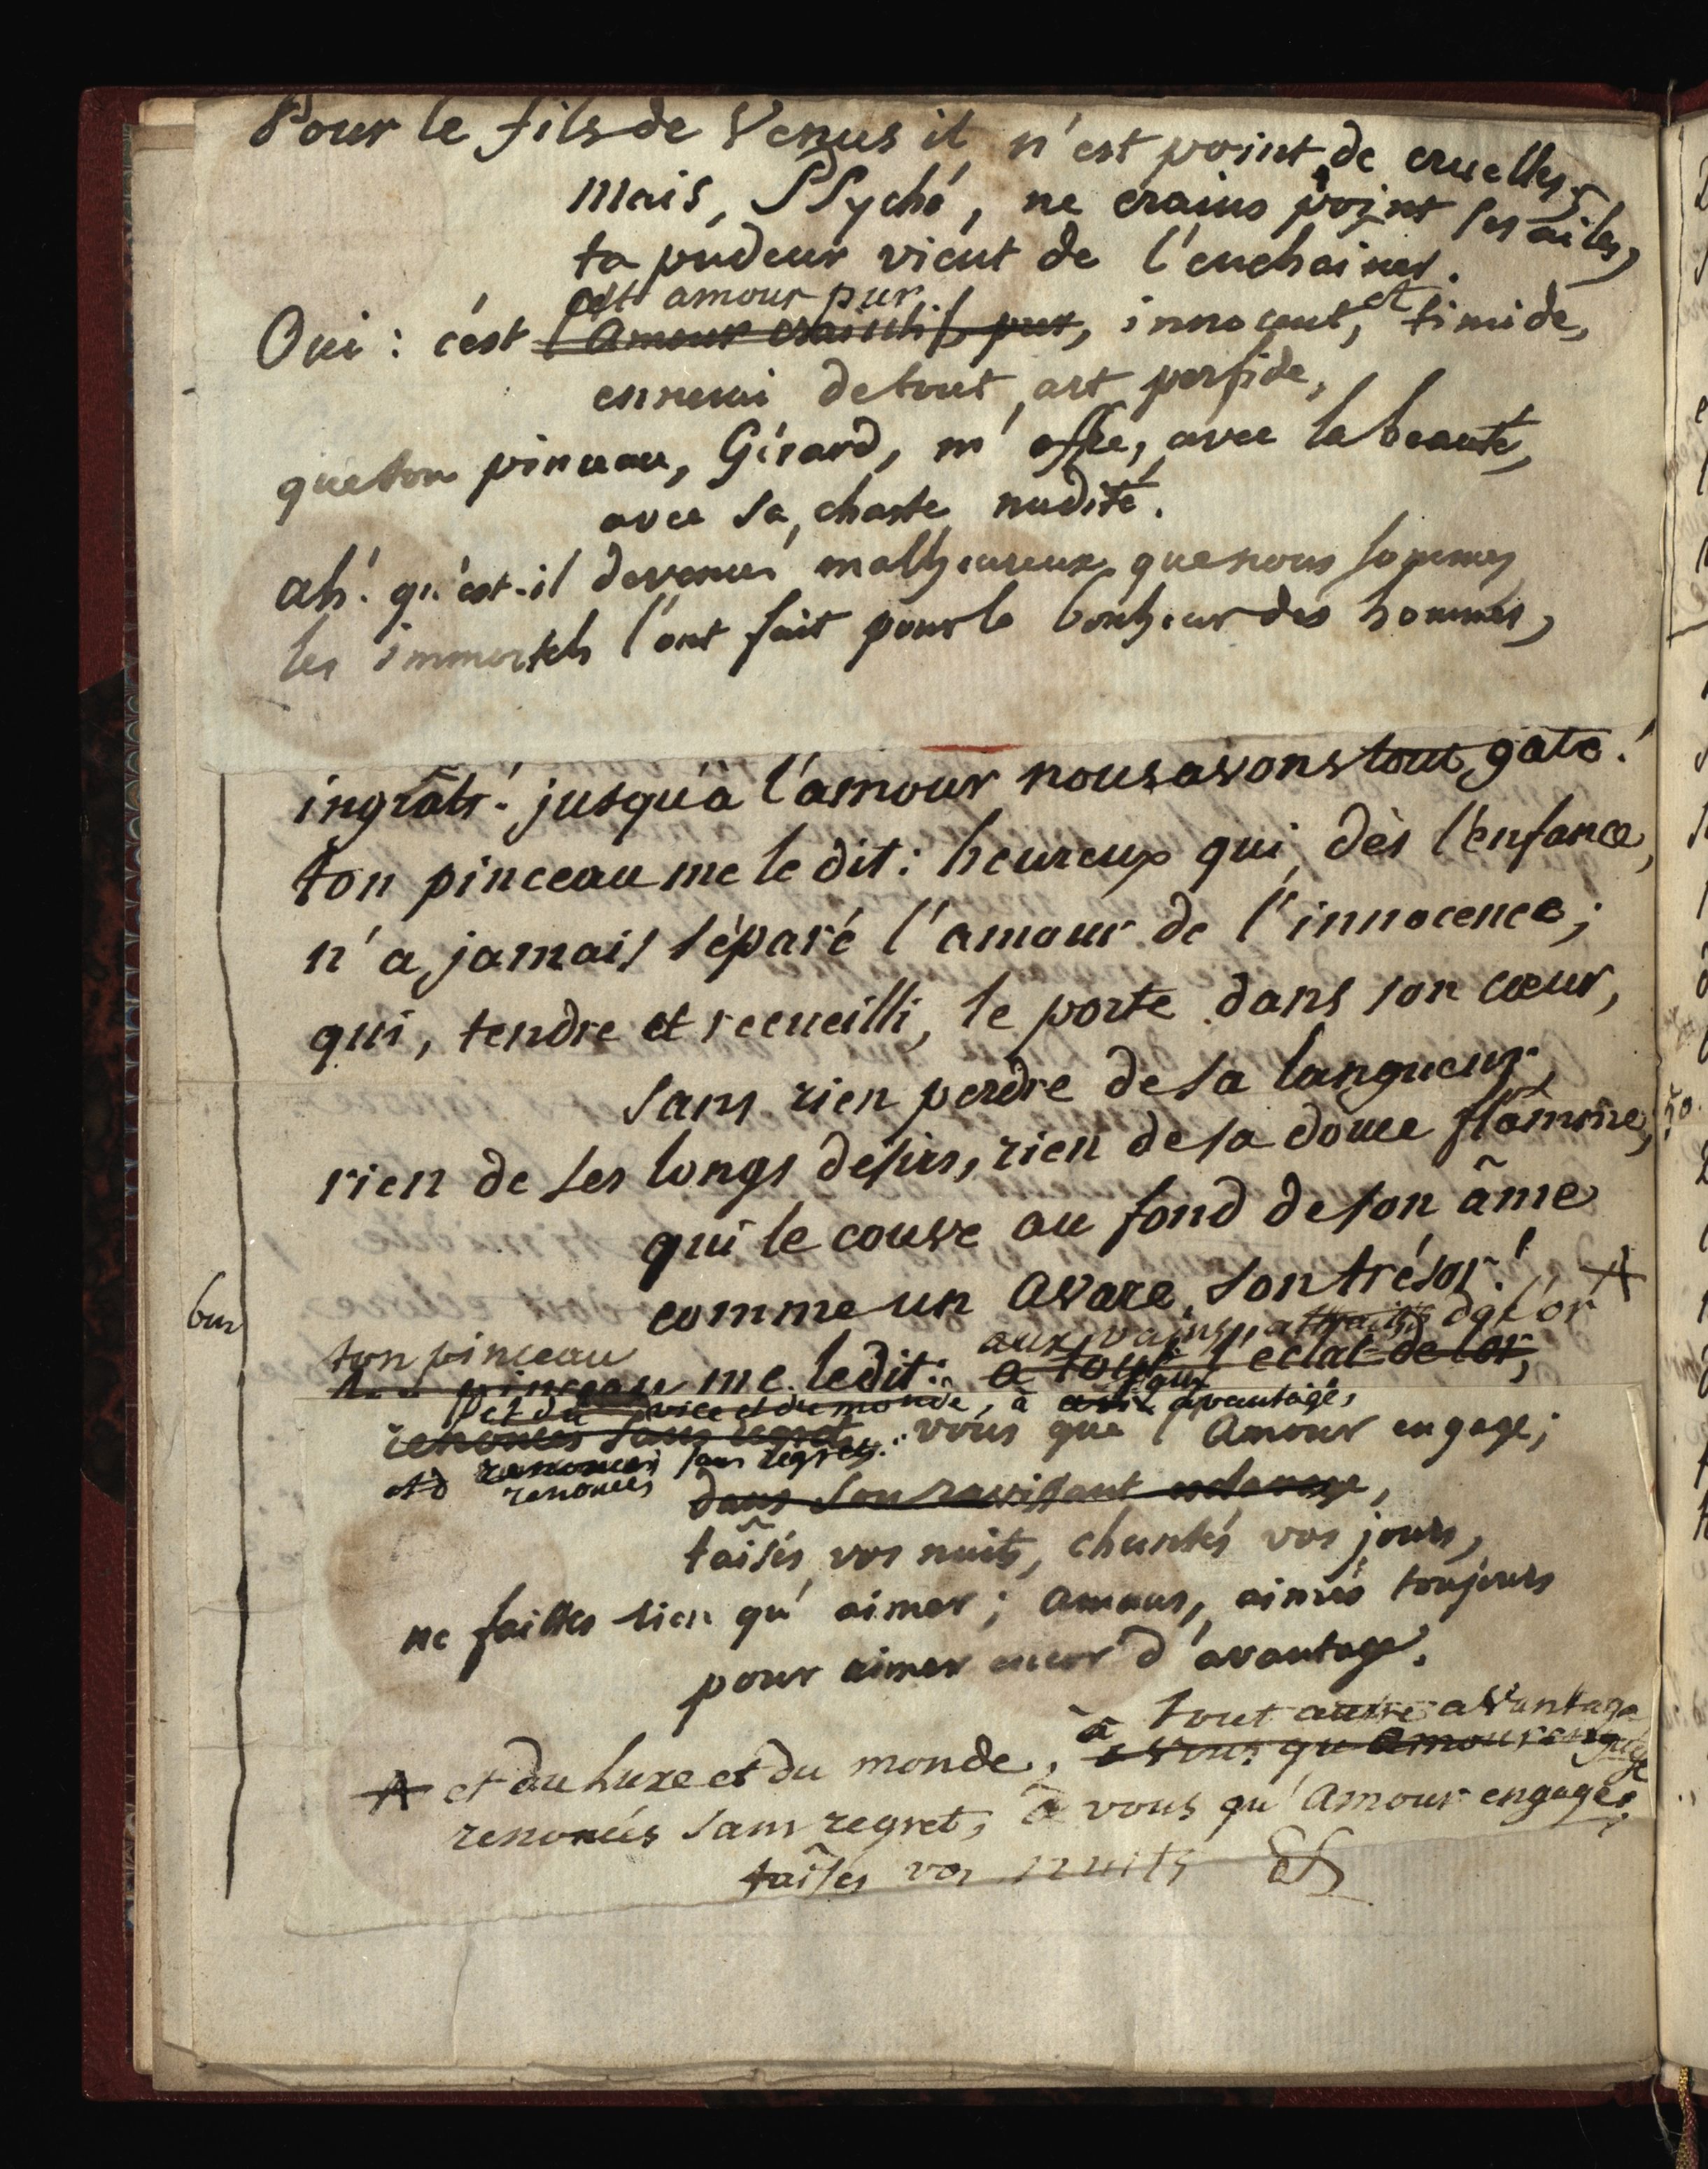 Pour le fils de Venus il n'est point de cruelles;
mais, PSyché, ne crains point ses ailes,
ta pudeur vient de l'enchainer.
cet amour pur
Oui: c'est l'Amour craintif, pur, innocent, et timide,
ennemi de tout art perfide,
que ton pinceau, Gérard, m'offre, avec la beauté,
avec sa chaste nudité.
ah! qu'est-il devenu? malheureux que nous sommes
les immortels l'ont fait pour le bonheur des hommes,
ingrats! jusqu'à l'amour nous avons tout gaté!
ton pinceau me le dit: heureux qui, dès l'enfance,
n'a jamais séparé l'amour de l'innocence;
qui, tendre et recueilli, le porte dans son cœur,
sans rien perdre de sa langueur,
rien de ses longs desirs, rien de sa douce flâmme,
qui le couve au fond de son âme
comme un avare, son trésor!
aux vains attraits de l'or
ton pinceau
pinceau me le dit: a tout l'eclat de l'or,
et du luxe et du monde, à avantage,
renoncés sans regret, vous que l'Amour engage;
renonces sans regret.
renoncés
dans son ravissant esclavage,
taîsés vos nuits, chantés vos jours,
ne faittes rien qu'aimer; amans, aimés toujours
pour aimer encor d'avantage.
à tout autre avantage
et du luxe et du monde, a vous qu'amour engage
renoncés sans regret, à vous qu'Amour engages,
taîses vos nuits &